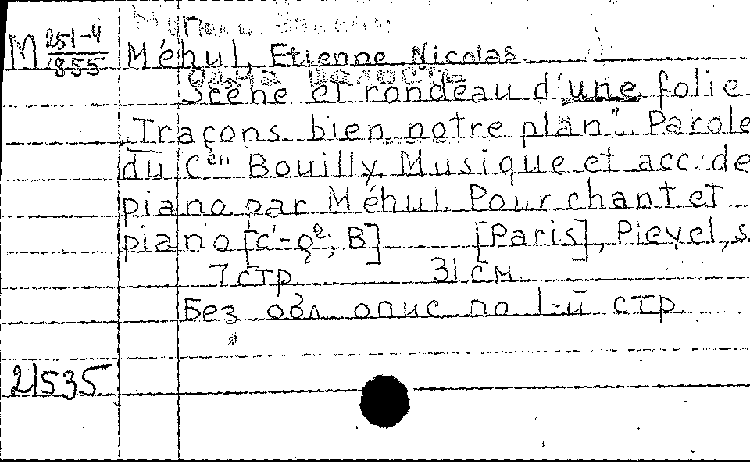 M 251-4/855 Méhul, Etienne Nicolas
Scène et rondeau d'une folie
"Traçons bien notre plan". Parole
du Cen Bouilly. Musique et acc. de
piano par Méhul. Pour chant et
piano [c'-g²; B] [Paris], Pleyel, s.
7 стр. 31 см.
Без обл. опис по 1-й стр.
21535